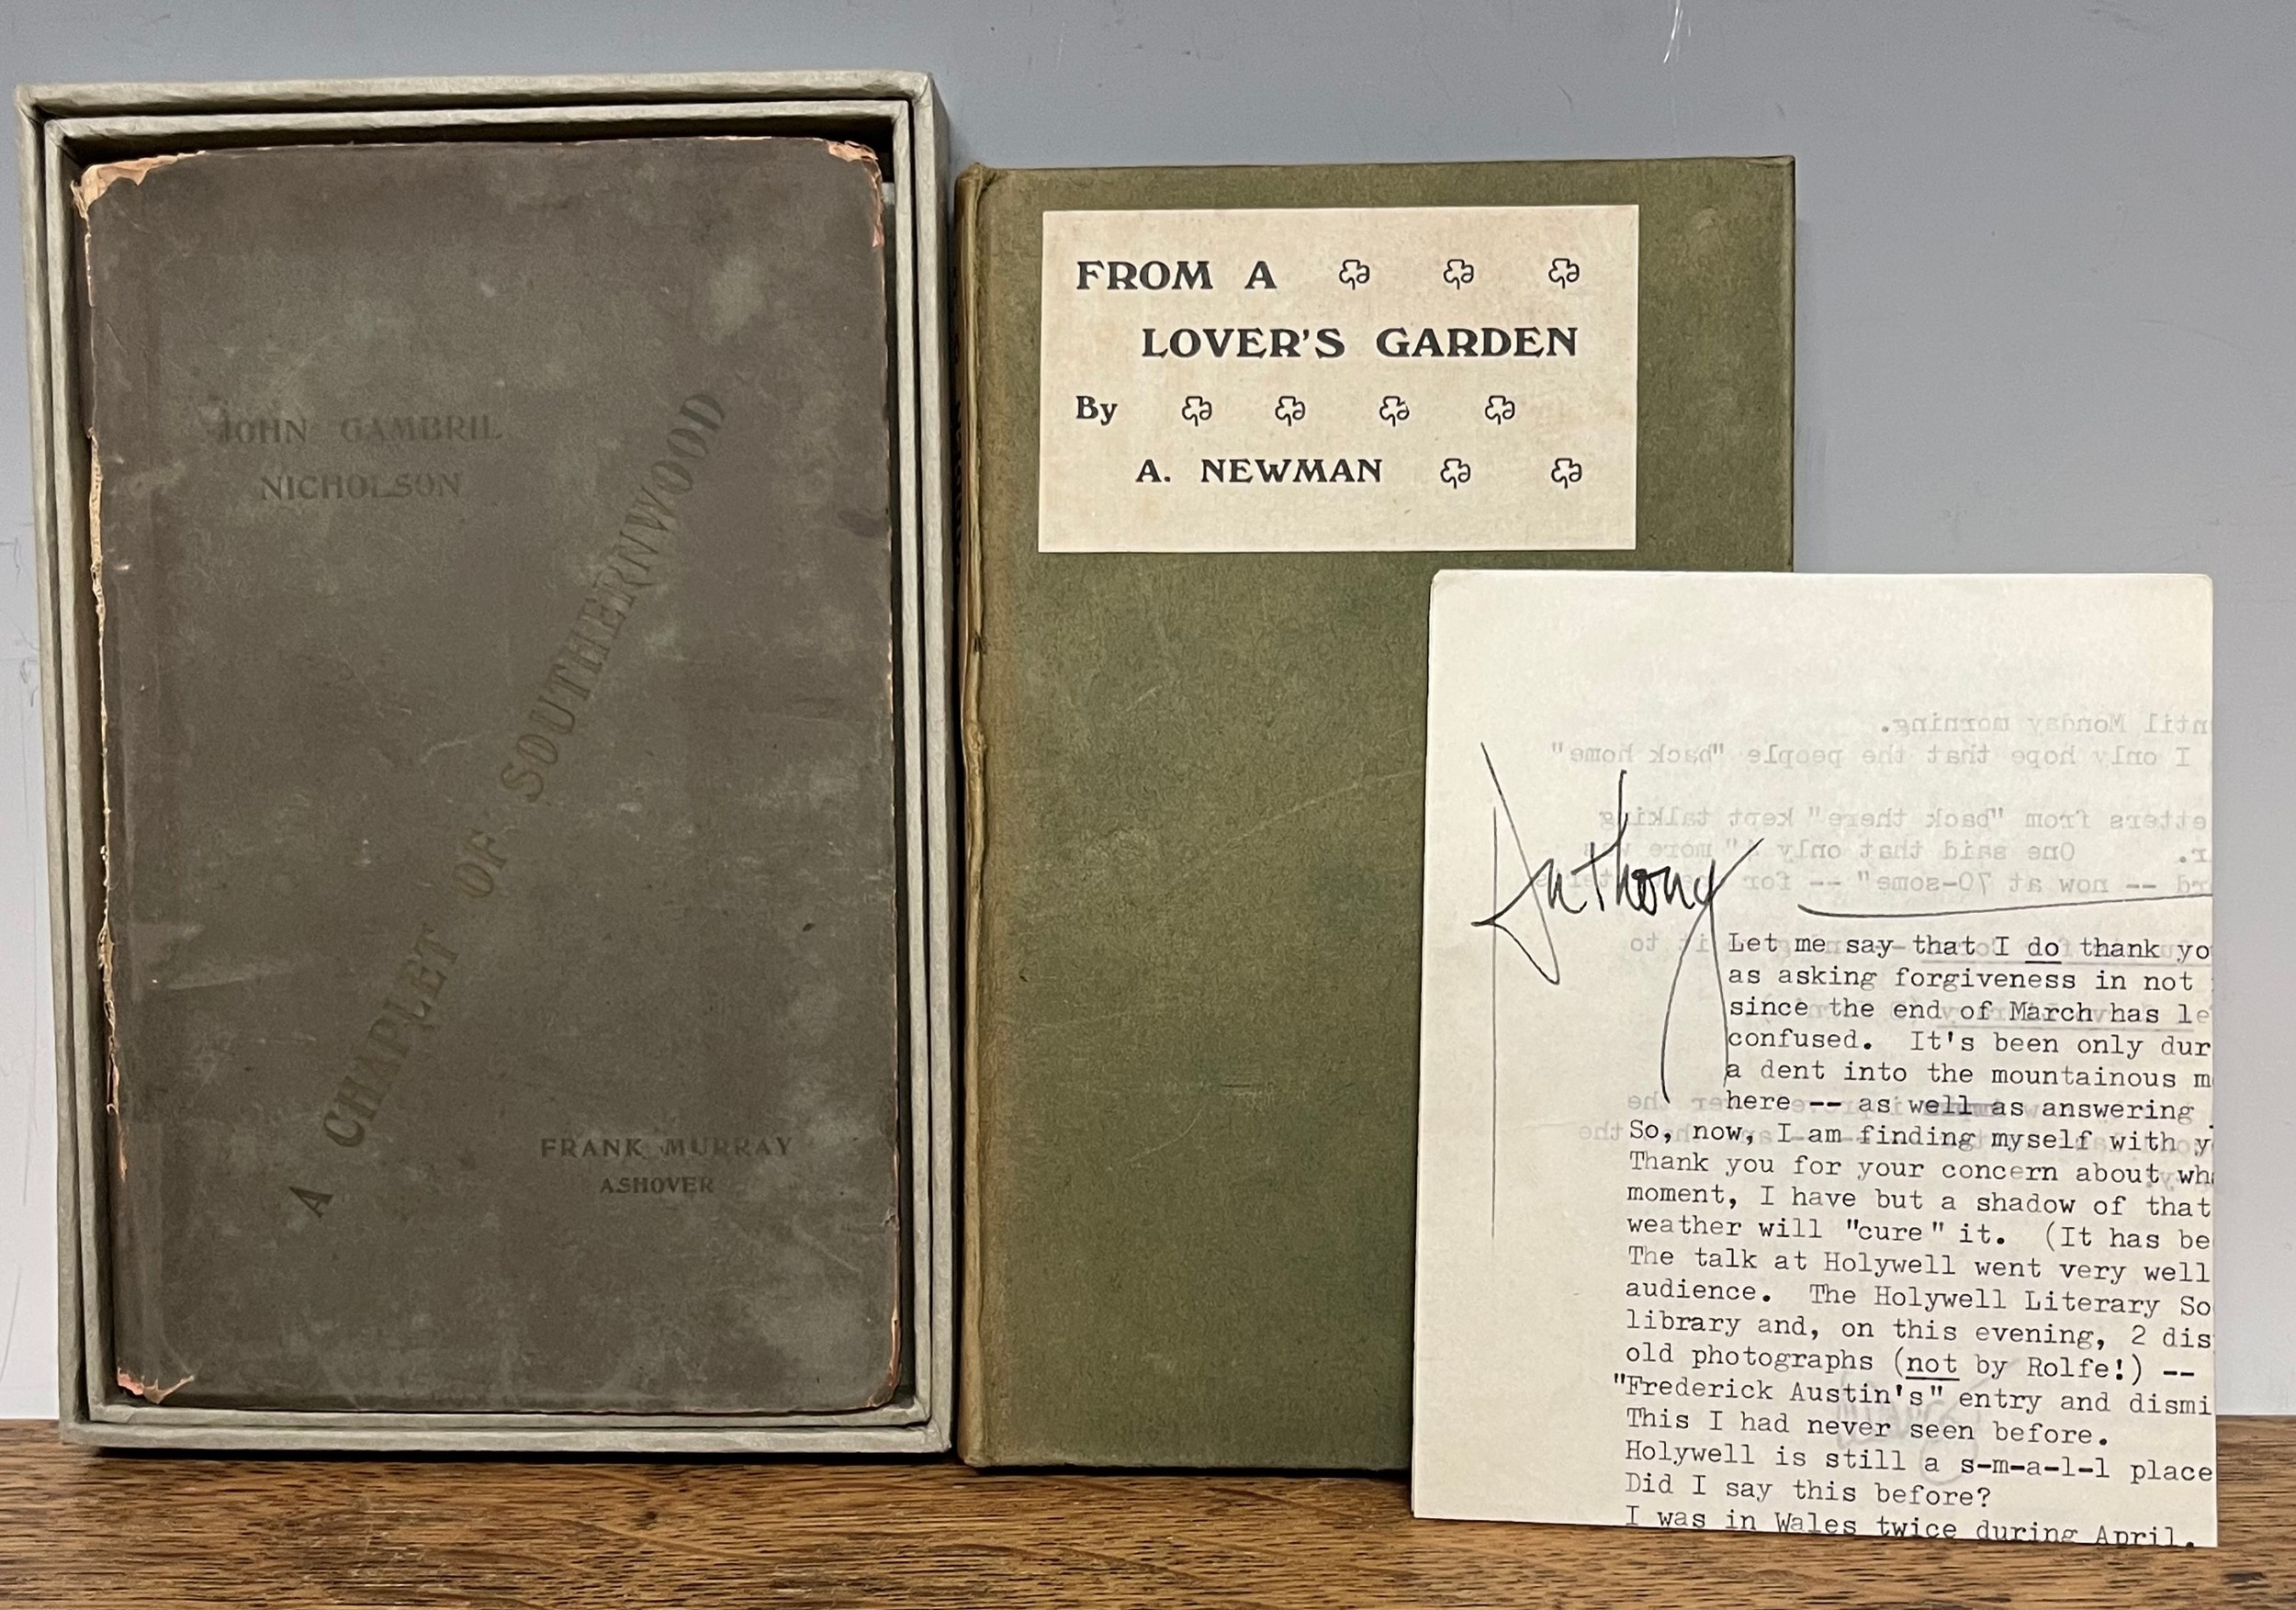 JOHN GAMBRIL
NICHOLSON
A CHAPLET OF SOUTHERNWOOD
FRANK MURRAY
ASHOVER
FROM A
LOVER'S GARDEN
By
A. NEWMAN
ntil Monday morning.
I only hope that the people "back home"
etters from "back there" kept talking
r. One said that only more
rd -- now at 70-some" -- for
Anthony
Let me say that I do thank yo
as asking forgiveness in not
since the end of March has le
confused. It's been only dur
a dent into the mountainous m
here -- as well as answering
So, now, I am finding myself with y
Thank you for your concern about wh
moment, I have but a shadow of that
weather will "cure" it. (It has be
The talk at Holywell went very well
audience. The Holywell Literary So
library and, on this evening, 2 dis
old photographs (not by Rolfe!) --
"Frederick Austin's" entry and dismi
This I had never seen before.
Holywell is still a s-m-a-l-l place
Did I say this before?
I was in Wales twice during April.